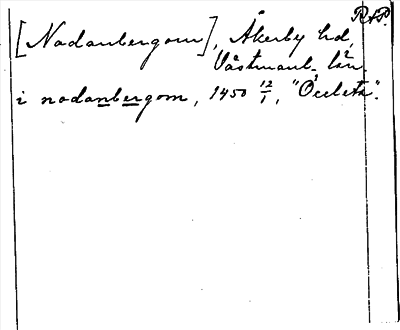 RAP.
[Nodanbergom], Åkerby hd,
Västmanl. län.
i nodanbergom, 1450 12/1, "Öccleta".